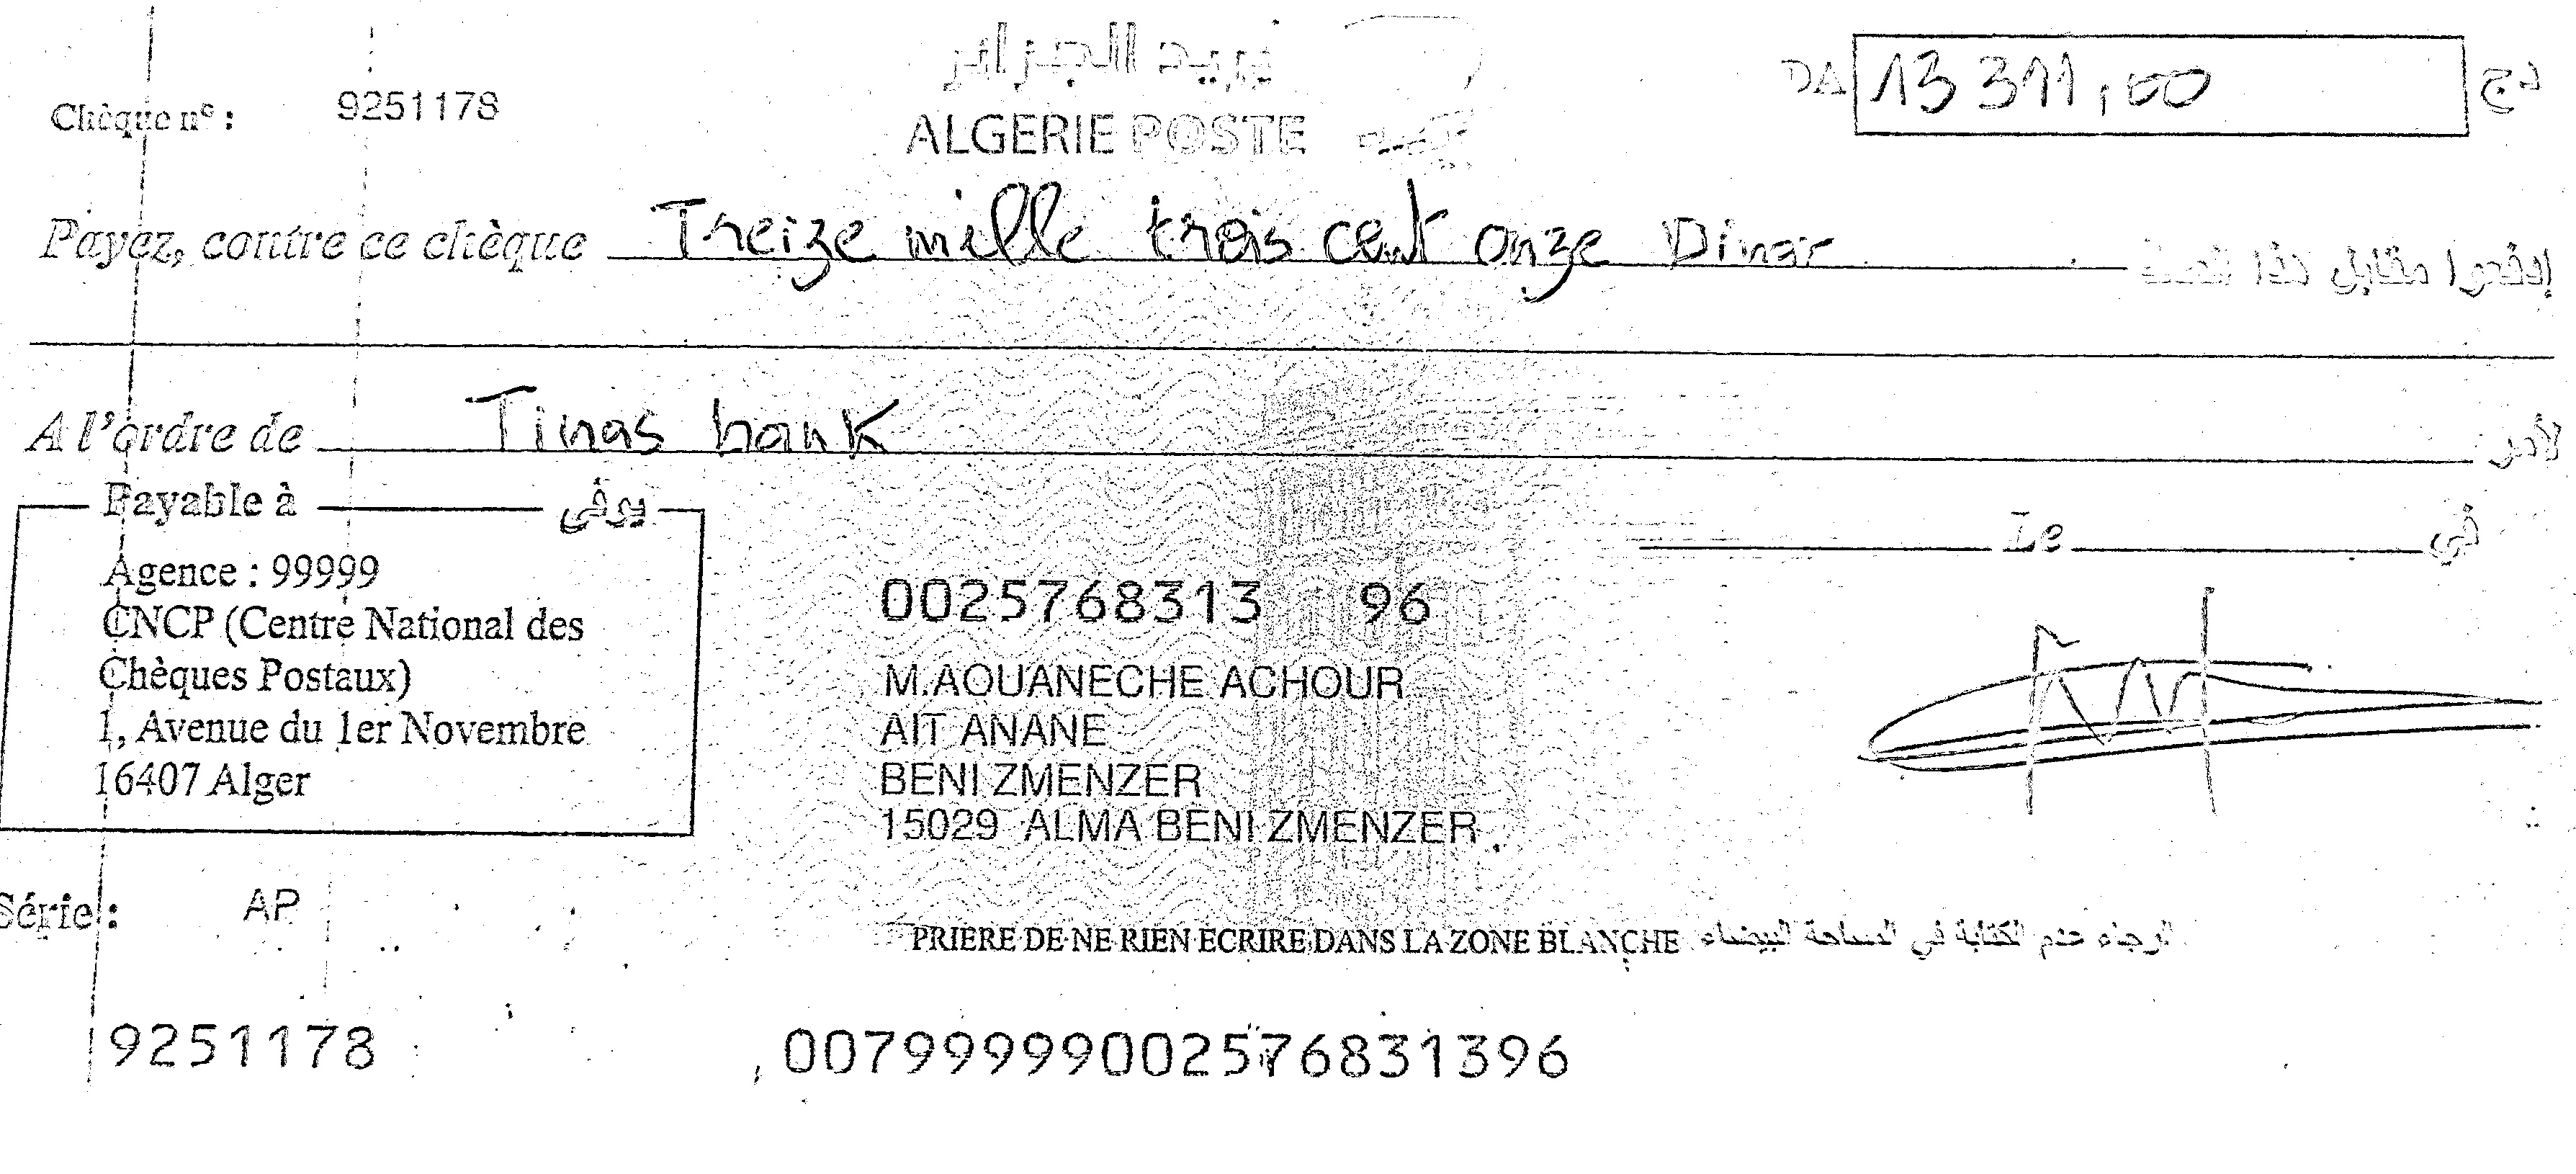 بريد الجزائر
Chèque n° : 9251178
ALGERIE POSTE
DA 13 311,00 دج
Payez, contre ce chèque Treize mille trois cent onze Dinar إدفعوا مقابل هذا الصك
A l'ordre de Tinas bank لأمر
Payable à يوفى
Agence : 99999
CNCP (Centre National des
Chèques Postaux)
1, Avenue du 1er Novembre
16407 Alger
Le في
0025768313 96
M.AOUANECHE ACHOUR
AIT ANANE
BENI ZMENZER
15029 ALMA BENI ZMENZER
Série : AP
PRIERE DE NE RIEN ECRIRE DANS LA ZONE BLANCHE الرجاء عدم الكتابة في المساحة البيضاء
9251178 00799999002576831396